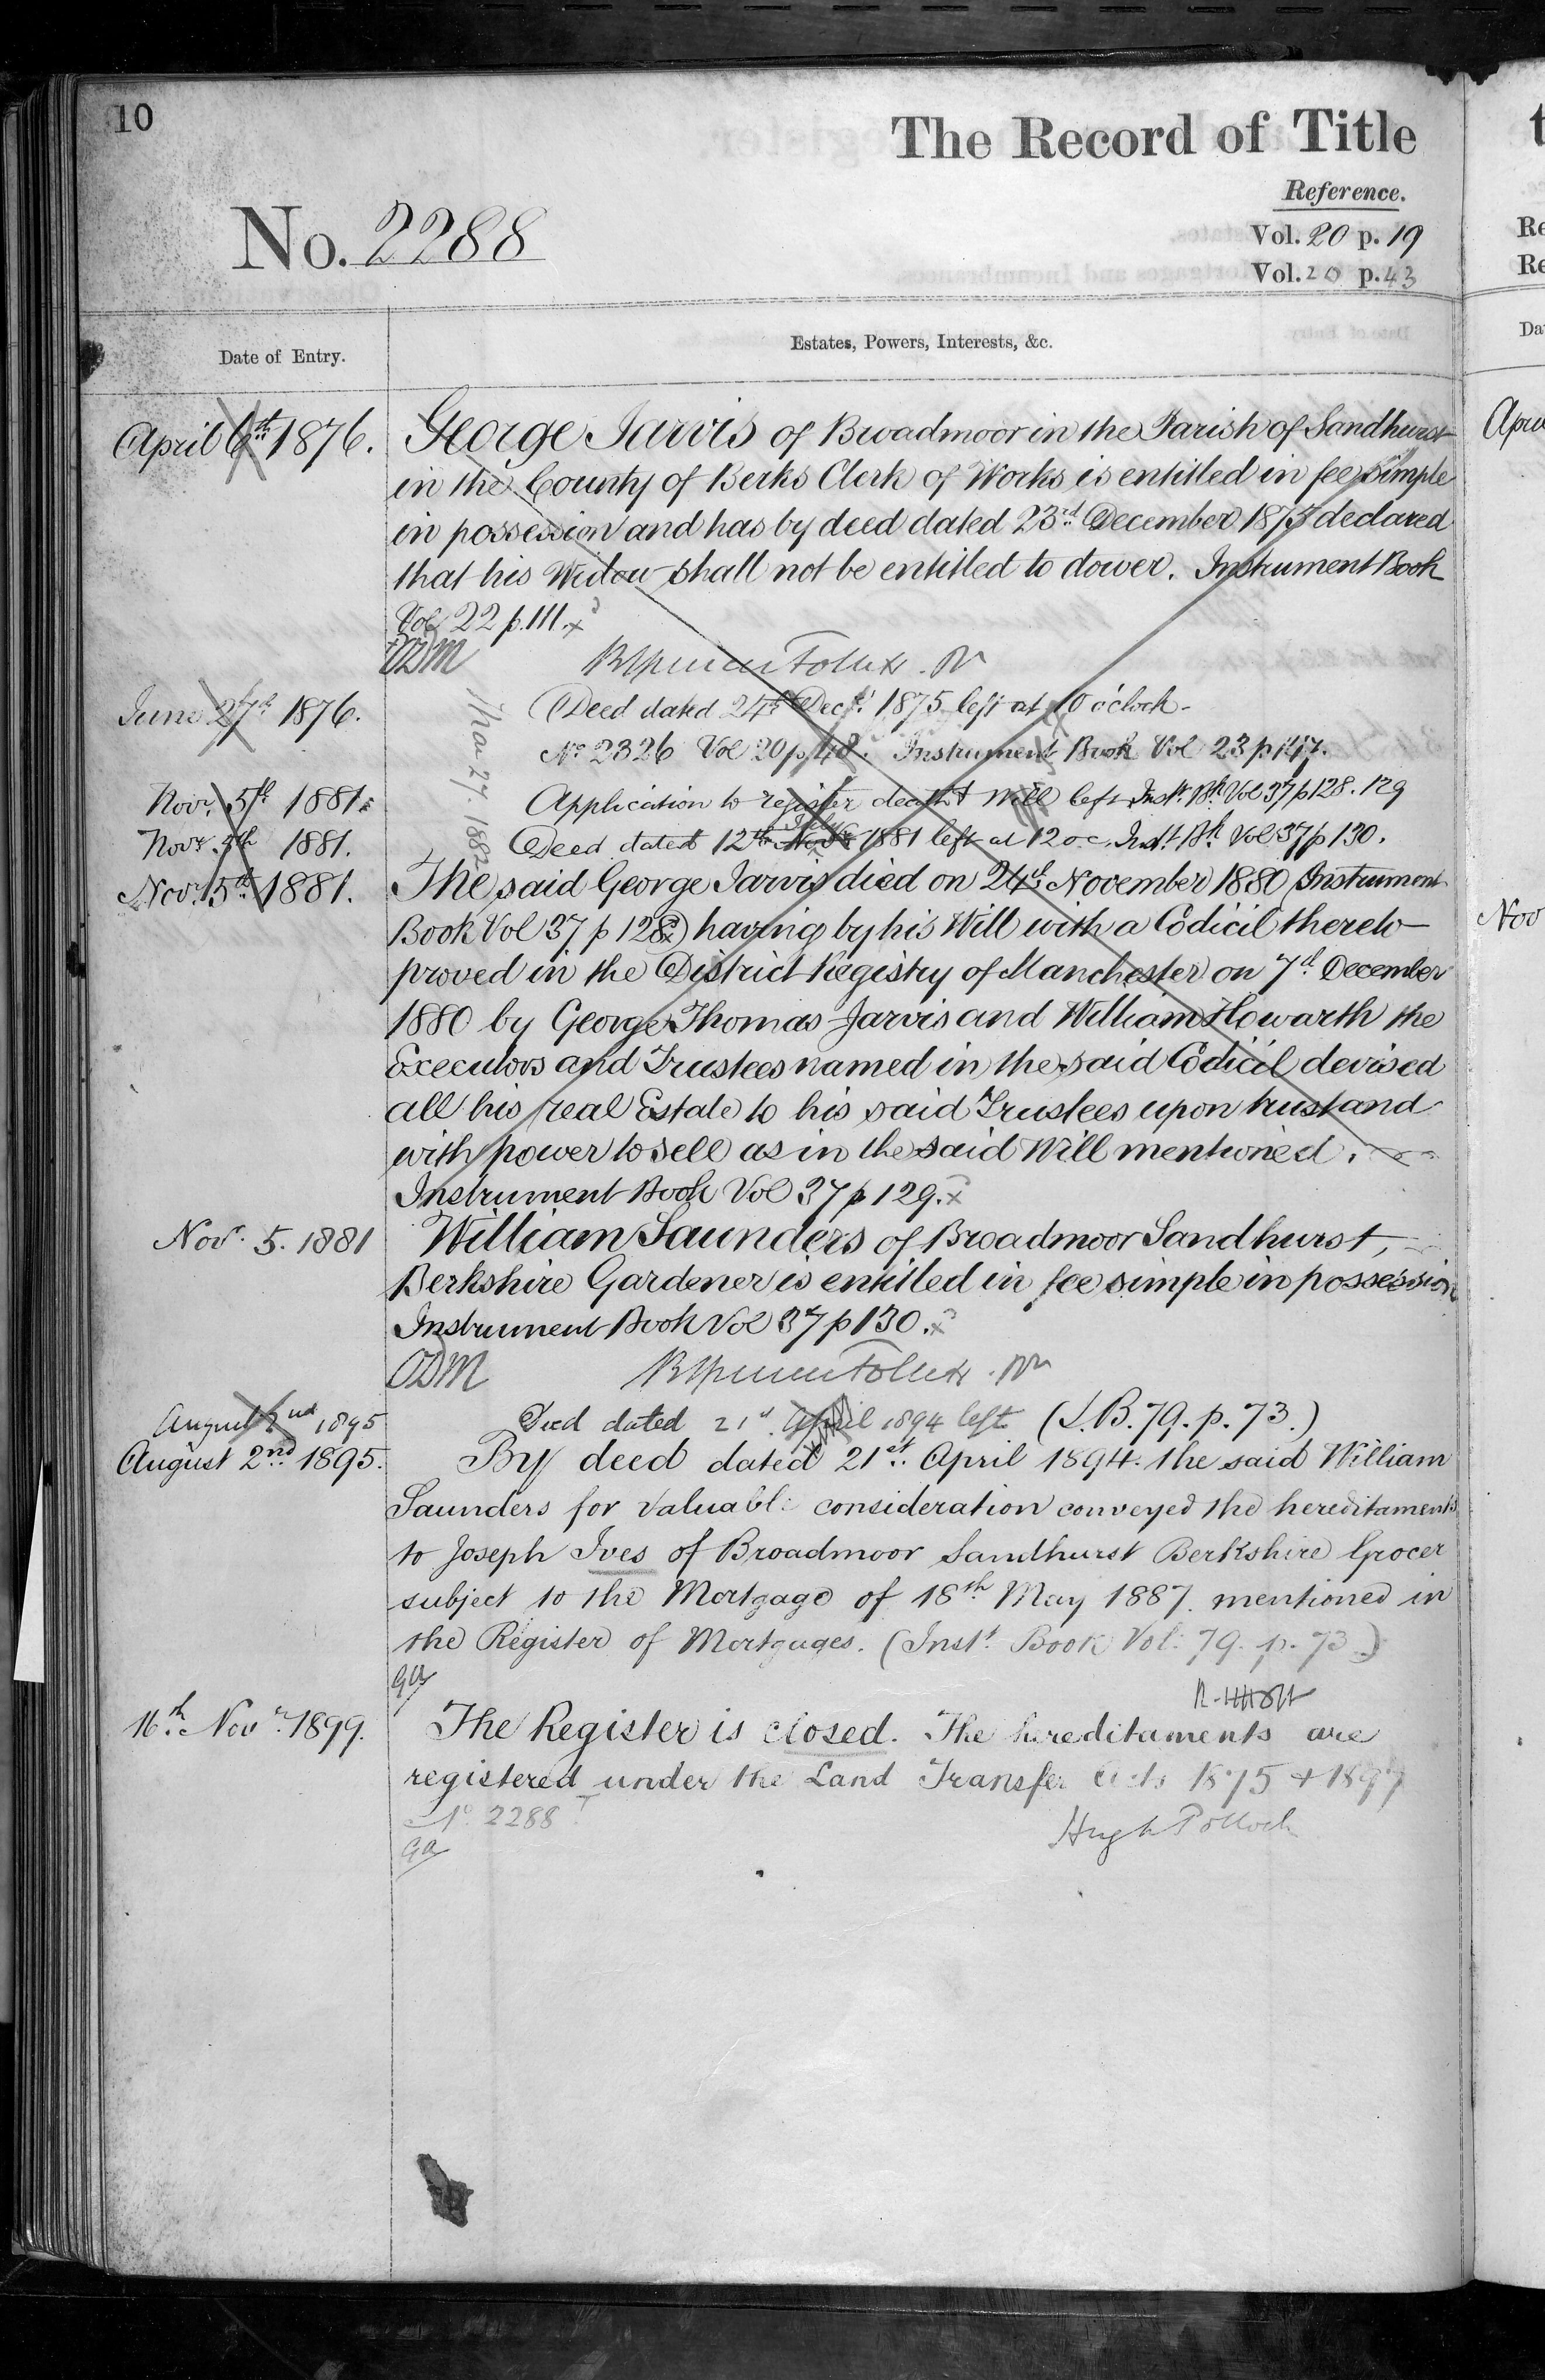 10
The Record of Title
Reference.
No. 2288
Vol. 20 p. 19
Vol. 20 p. 43
Date of Entry.
Estates, Powers, Interests, &c.
April 6th 1876. George Jarvis of Broadmoor in the Parish of Sandhurst
in the County of Berks Clerk of Works is entitled in fee simple
in possession and has by deed dated 23rd December 1875 declared
that his Widow shall not be entitled to dower. Instrument Book
Vol 22 p. 111.
ODM
June 27th 1876. Deed dated 24th Decr. 1875 left at 10 o'clock
No 2326 Vol 20 p 48. Instrument Book Vol 23 p 117.
Mar 27. 1882
Novr. 5th 1881. Application to register death & Will left Inst. Bk. Vol 37 p 128. 129
Novr. 5th 1881. Deed dated 12th July 1881 left at 12 o.c. Inst. Bk. Vol 37 p 130.
Nov. 5th 1881. The said George Jarvis died on 24th November 1880 (Instrument
Book Vol 37 p 128) having by his Will with a Codicil thereto
proved in the District Registry of Manchester on 7th December
1880 by George Thomas Jarvis and William Howarth the
Executors and Trustees named in the said Codicil devised
all his real Estate to his said Trustees upon trust and
with power to sell as in the said Will mentioned.
Instrument Book Vol 37 p 129.
Novr. 5. 1881 William Saunders of Broadmoor Sandhurst,
Berkshire Gardener is entitled in fee simple in possession
Instrument Book Vol 37 p 130.
ODM
August 2nd 1895 Deed dated 21st April 1894 left (I.B. 79. p. 73.)
August 2nd 1895. By deed dated 21st April 1894 the said William
Saunders for valuable consideration conveyed the hereditaments
to Joseph Ives of Broadmoor Sandhurst Berkshire Grocer
subject to the Mortgage of 18th May 1887 mentioned in
the Register of Mortgages. (Inst. Book Vol: 79. p. 73.)
ga
16th Novr. 1899. The Register is closed. The hereditaments are
registered under the Land Transfer Acts 1875 & 1897
No. 2288
Hugh Pollock
ga